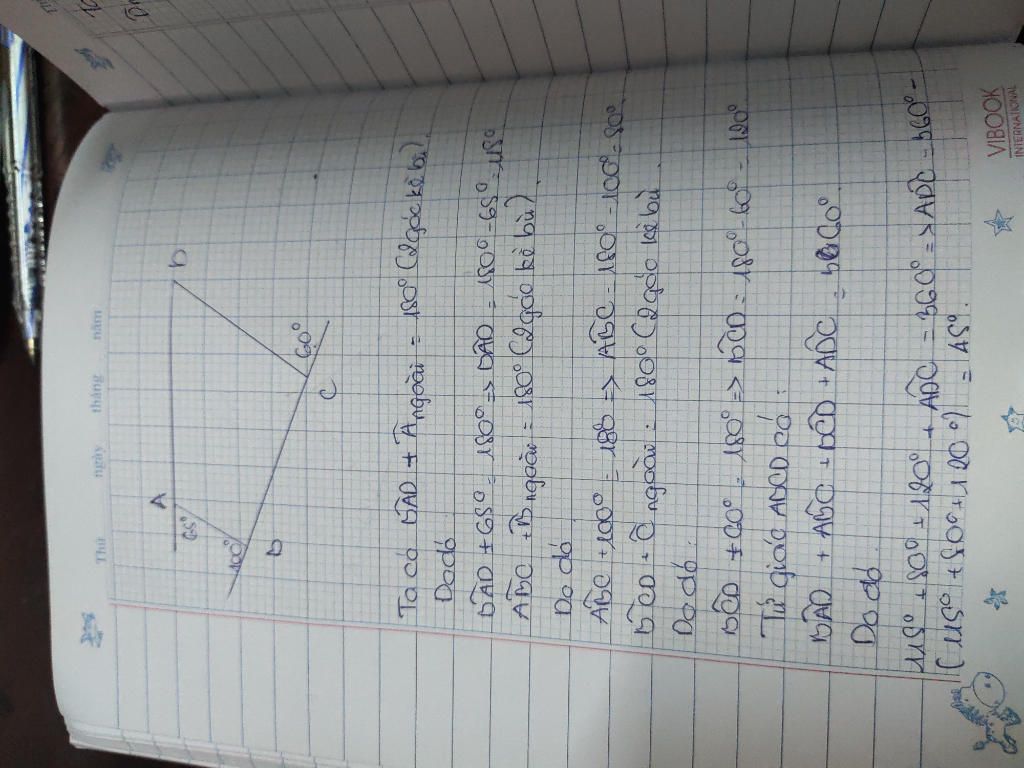 Thứ ngày tháng năm
A
D
65°
100°
B
C
60°
Ta có BAD + Angoài = 180° (2 góc kề bù)
Do đó
BAD + 65° = 180° => BAD = 180° - 65° = 115°
ABC + Bngoài = 180° (2 góc kề bù)
Do đó
ABC + 100° = 180 => ABC = 180° - 100° = 80°
BCD + Cngoài = 180° (2 góc kề bù
Do đó:
BCD + 60° = 180° => BCD = 180° - 60° = 120°
Tứ giác ABCD có:
BAD + ABC + BCD + ADC = 360°
Do đó
115° + 80° + 120° + ADC = 360° => ADC = 360° -
(115° + 80° + 120°) = 45°
VIBOOK
INTERNATIONAL